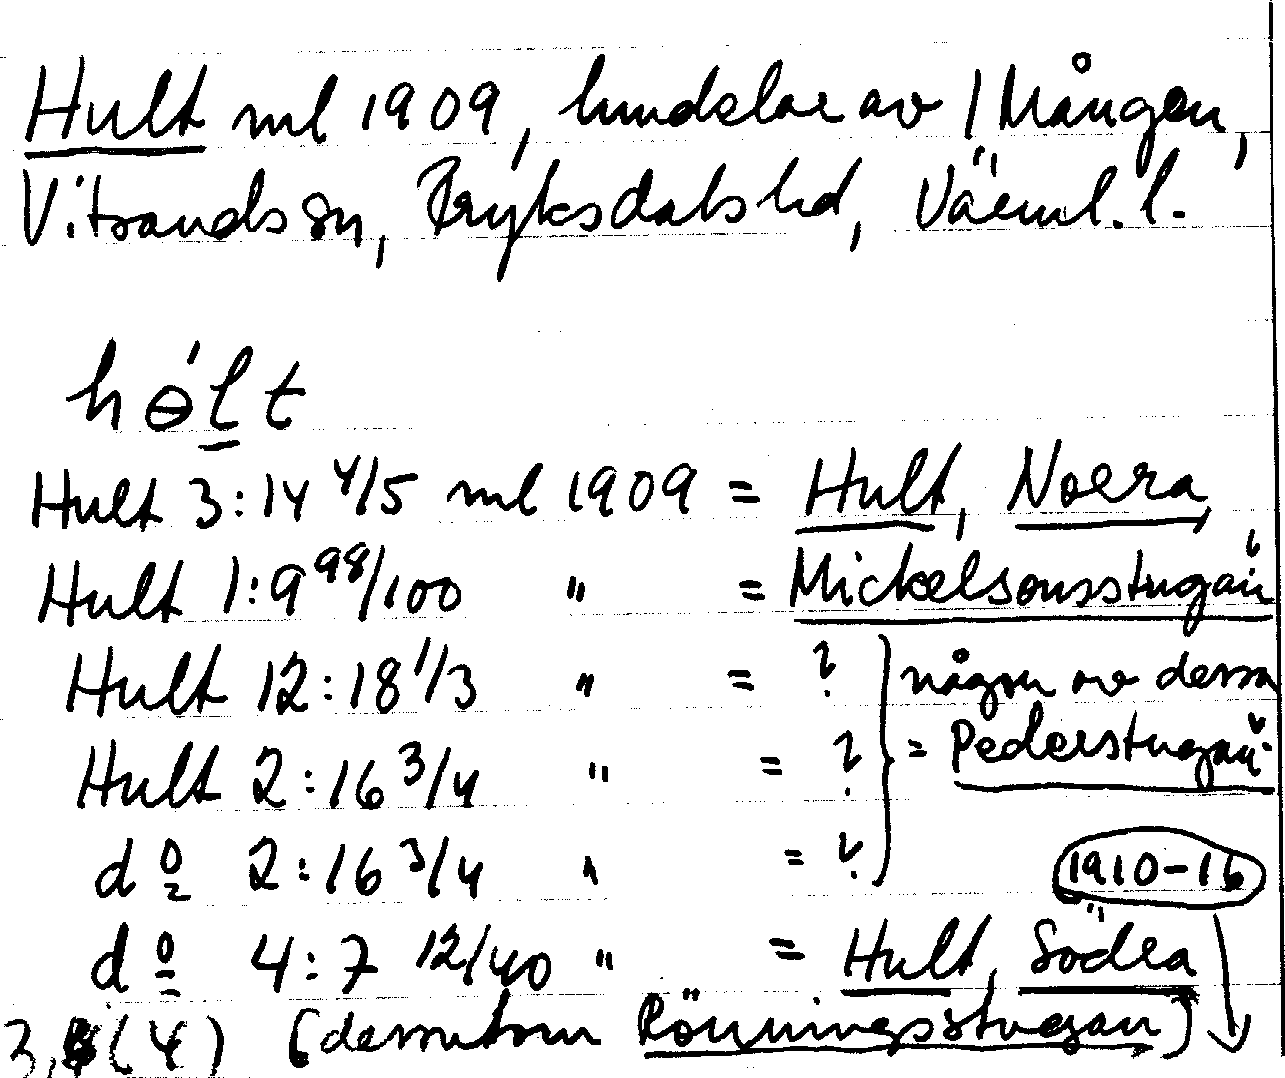 Hult ml 1909, hundelar av 1 Mången,
Vitsands sn, Fryksdals hd, Värml. l.
hɵ́l̠t
Hult 3:14 4/5 ml 1909 = Hult, Norra,
Hult 1:9 98/100 " = Mickelsonsstugan
Hult 12:18 1/3 " = ? någon av dessa
Hult 2:16 3/4 " = ? = Pederstugan
do 2:16 3/4 " = ?
1910-16
do 4:7 12/40 " = Hult, Södra
3, (4) [dessutom Rönningsstugan]